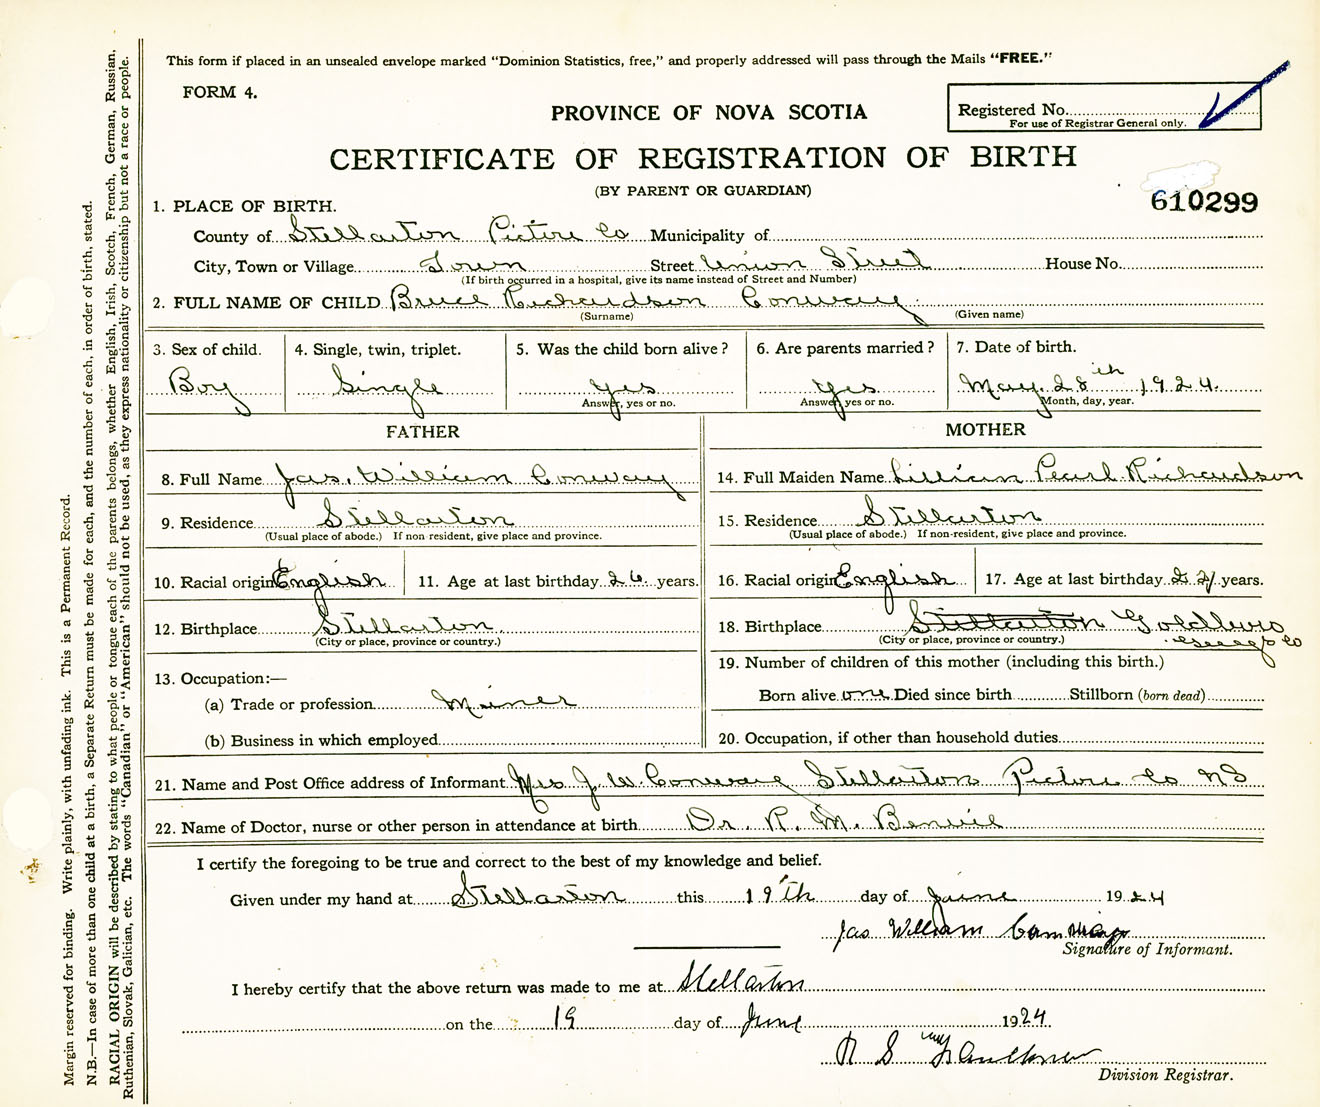 This form if placed in an unsealed envelope marked "Dominion Statistics, free," and properly addressed will pass through the Mails "FREE."
FORM 4.
PROVINCE OF NOVA SCOTIA
Registered No.
For use of Registrar General only.
CERTIFICATE OF REGISTRATION OF BIRTH
(BY PARENT OR GUARDIAN)
610299
1. PLACE OF BIRTH.
County of Stellarton Pictou Co Municipality of
City, Town or Village Town Street Union Street House No.
(If birth occurred in a hospital, give its name instead of Street and Number)
2. FULL NAME OF CHILD Bruce Richardson Conway
(Surname) (Given name)
3. Sex of child. 4. Single, twin, triplet. 5. Was the child born alive? 6. Are parents married? 7. Date of birth.
Boy Single yes yes May 28th 1924.
Answer, yes or no. Answer, yes or no. Month, day, year.
FATHER MOTHER
8. Full Name Jas. William Conway 14. Full Maiden Name Lillian Pearl Richardson
9. Residence Stellarton 15. Residence Stellarton
(Usual place of abode.) If non resident, give place and province. (Usual place of abode.) If non-resident, give place and province.
10. Racial origin English 11. Age at last birthday 26 years. 16. Racial origin English 17. Age at last birthday years.
12. Birthplace Stellarton. 18. Birthplace Stellarton
(City or place, province or country.) (City or place, province or country.) Co
19. Number of children of this mother (including this birth.)
13. Occupation:—
(a) Trade or profession Miner Born alive one Died since birth Stillborn (born dead)
(b) Business in which employed 20. Occupation, if other than household duties
21. Name and Post Office address of Informant Mrs J. W. Conway Stellarton Pictou Co NS
22. Name of Doctor, nurse or other person in attendance at birth Dr. R. M. Benvie
I certify the foregoing to be true and correct to the best of my knowledge and belief.
Given under my hand at Stellarton this 19th day of June 1924
Jas William Conway
Signature of Informant.
I hereby certify that the above return was made to me at Stellarton
on the 19 day of June 1924
Faulkner
Division Registrar.
Margin reserved for binding. Write plainly, with unfading ink. This is a Permanent Record.
N.B.—In case of more than one child at a birth, a Separate Return must be made for each, and the number of each, in order of birth, stated.
RACIAL ORIGIN will be described by stating to what people or tongue each of the parents belongs, whether English, Irish, Scotch, French, German, Russian,
Ruthenian, Slovak, Galician, etc. The words "Canadian" or "American" should not be used, as they express nationality or citizenship but not a race or people.